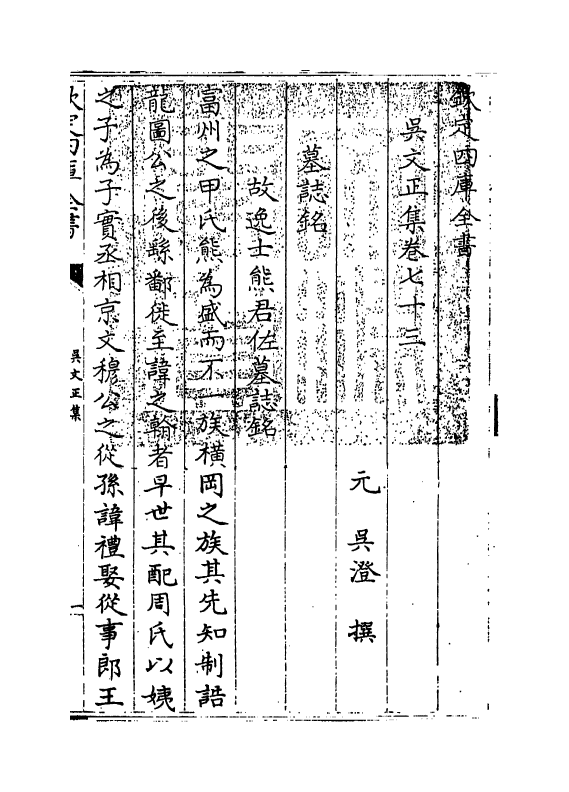 欽定四庫全書
吳文正集卷七十三
元　吳澄　撰
墓誌銘
故逸士熊君佐墓誌銘
富州之甲氏熊為盛而不一族橫岡之族其先知制誥
龍圖公之後縣鄱徙至諱之翰者早世其配周氏以姨
之子為子實丞相京文穆公之從孫諱禮娶從事郎王
欽定四庫全書
吳文正集
一